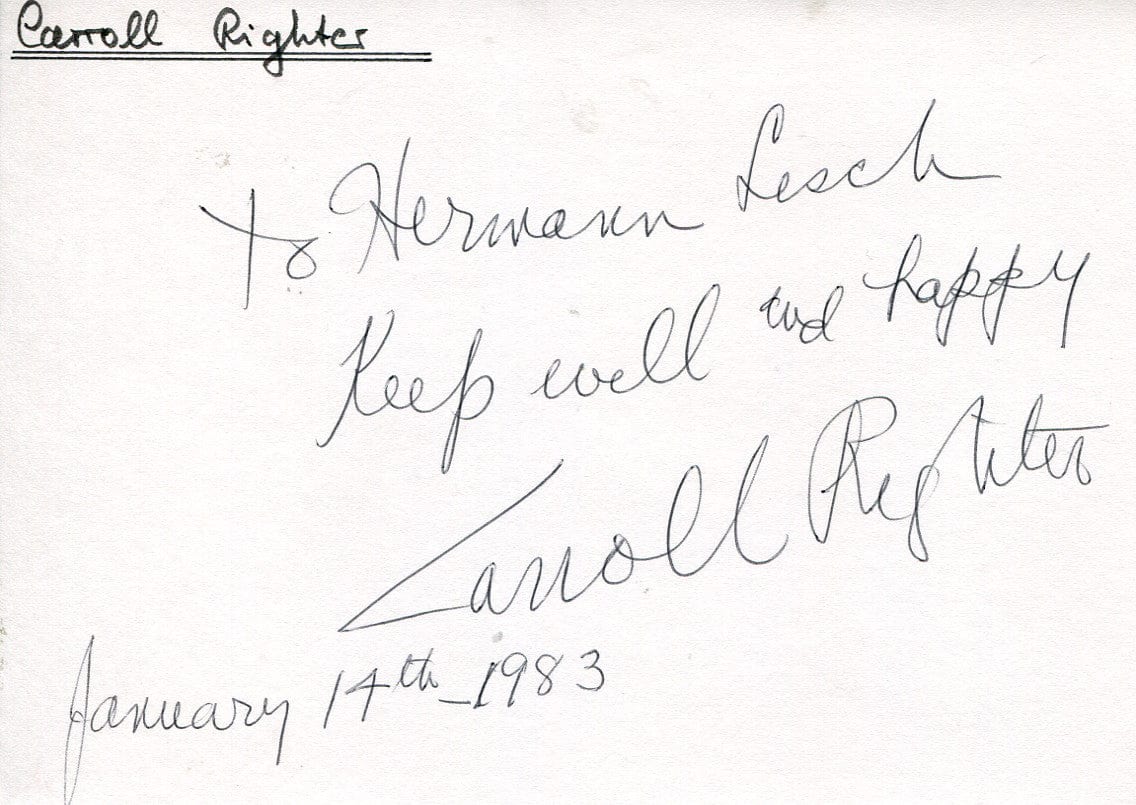 Carroll Righter
To Hermann Lesch
Keep well and happy
Carroll Righter
January 14th_1983